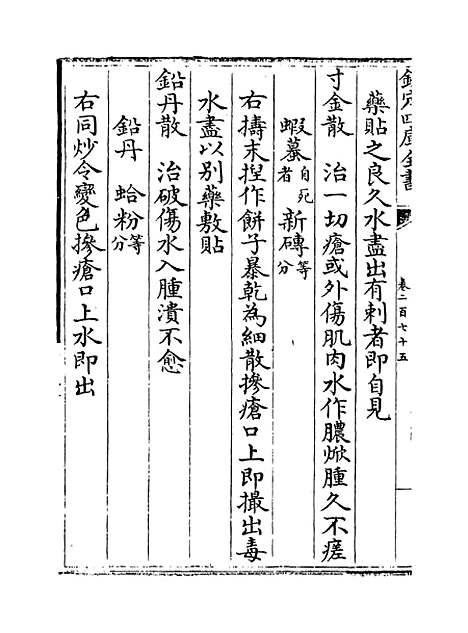 欽定四庫全書
卷二百七十五
藥貼之良久水盡出有刺者即自見
寸金散　治一切瘡或外傷肌肉水作膿焮腫久不瘥
蝦蟇自死者　新磚等分
右擣末捏作餅子暴乾為細散摻瘡口上即撮出毒
水盡以別藥敷貼
鉛丹散　治破傷水入腫潰不愈
鉛丹　蛤粉等分
右同炒令變色摻瘡口上水即出